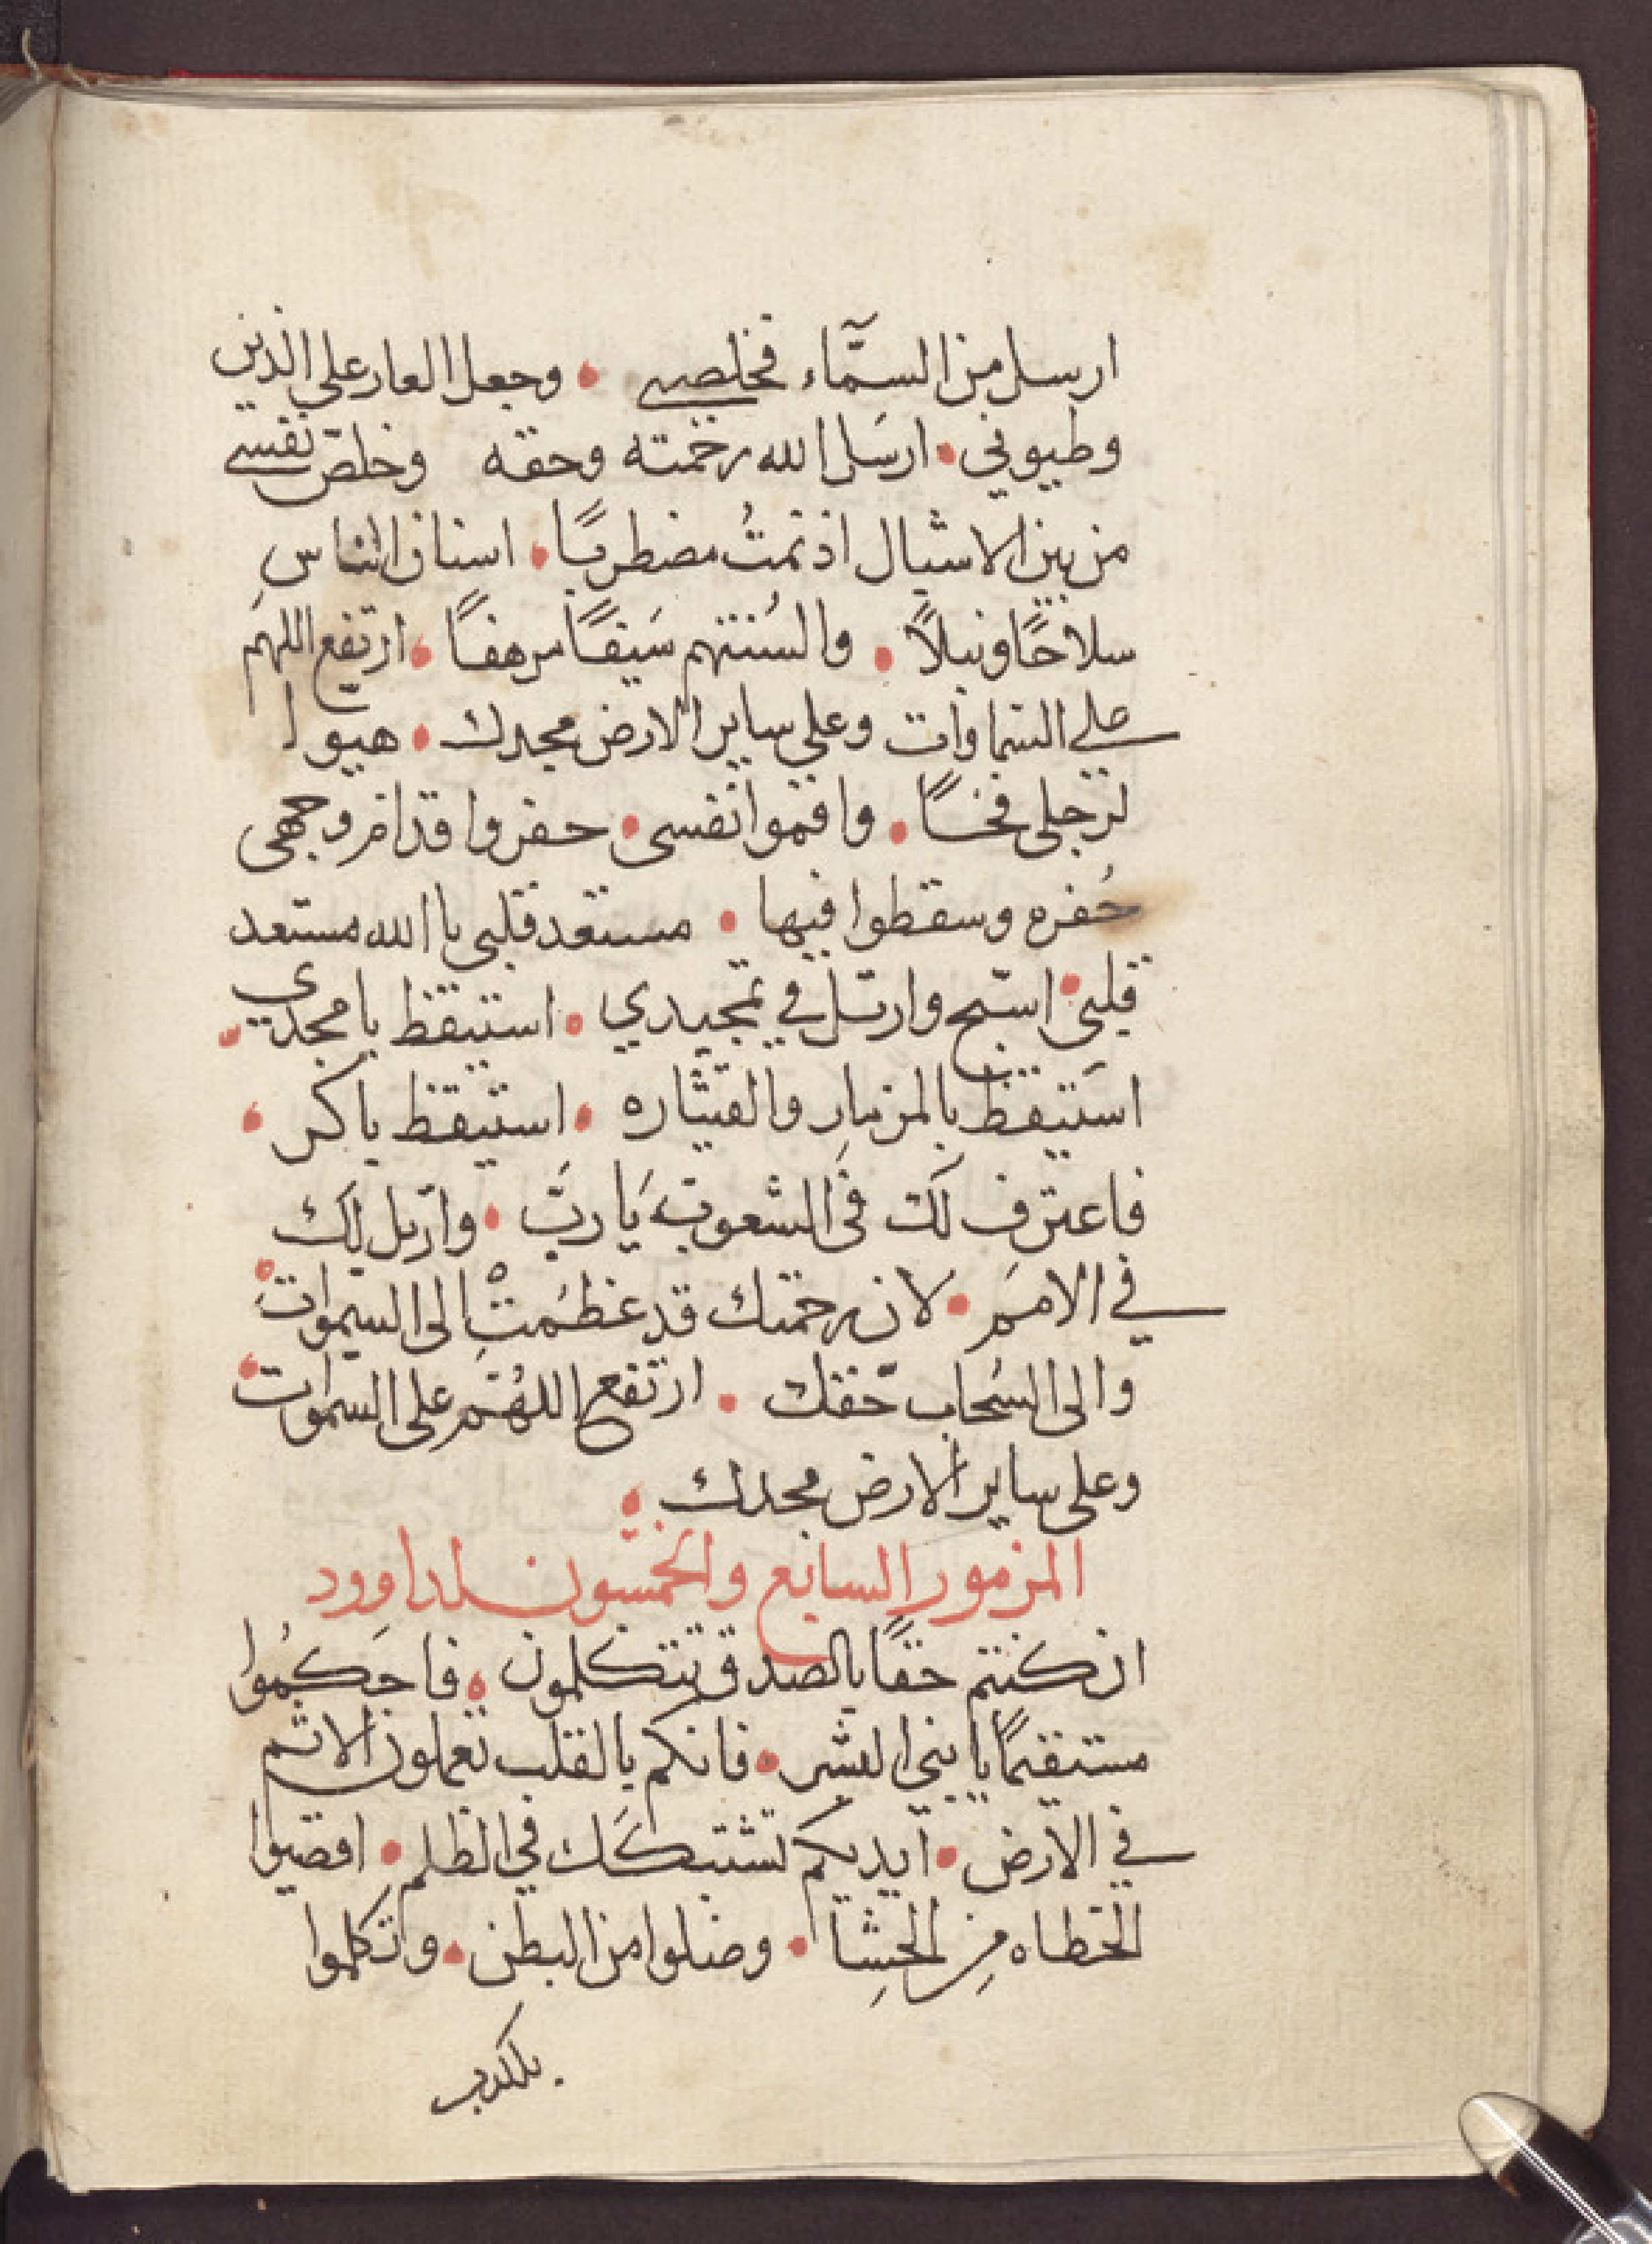 ارسل من السمَّآء فخلصني • وجعل العار على الذين
وطيوني • ارسَل الله رحمته وحقه وخلصّ نفسي
من بين الاشبال اذ نمتُ مضطربًا • اسنان الناسِ
سلاحًا ونبلاً • والسُنتهم سَيفًا مرهفًا • ارتفع اللهم
على السماوات وعلى ساير الارض مجدك • هيوا
لرجلى فخًا • واقموا نفسى • حفروا قدام وجهى
حُفره وسقطوا فيها • مستعد قلبى يا الله مستعد
قلبى • اسبّح وارتل في تمجيدي • استيقظ يا مجدي •
استَيقظ بالمزمارِ والقيثاره • استيقظ باكر •
فاعترف لَك فى الشعوب يَا ربّ • وارتل لَك
في الامم • لان رحمتك قد عظمُتْ الى السموات •
والى السُحاب حقك • ارتفع اللهُم على السموات •
وعلى ساير الارض مجدك •
المزمور السابع والخمسون لداوود
ان كنتم حقًا بالصدق تتكلمون • فاحَكُموا
مستقيمًا يا بني البشر • فانكم بالقلب تعملون الاثم
في الارض • ايديكم تشتبكَ في الظلم • اقصيوا
الخطاه مِن الحشِا • وضلوا من البطن • وتكلموا
بلكدب